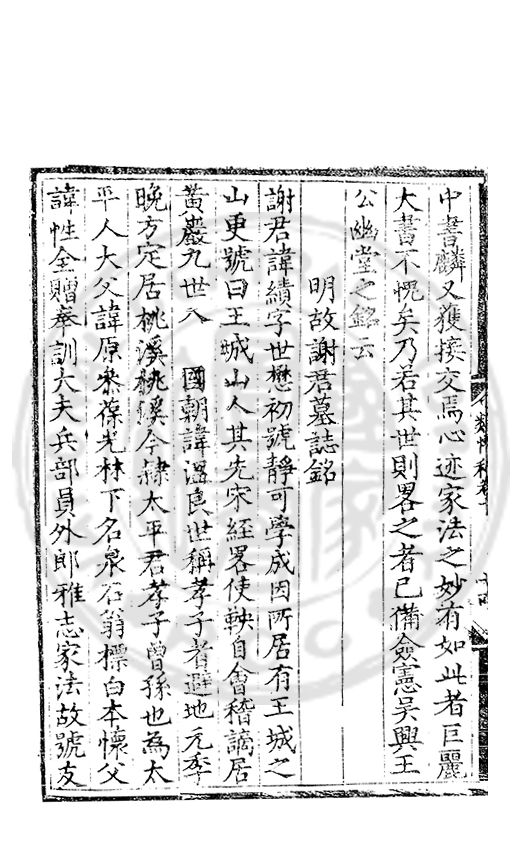 中書麟又獲接交焉心迹家法之妙有如此者巨麗
大書不愧矣乃若其世則畧之者已備僉憲吳興王
公幽堂之銘云
明故謝君墓誌銘
謝君諱績字世懋初號靜可學成因所居有王城之
山更號曰王城山人其先宋經畧使軮自會稽謫居
黃巖九世入 國朝諱溫良世稱孝子者避地元季
晚方定居桃溪桃溪今隸太平君孝子曾孫也為太
平人大父諱原泰葆光林下名泉石翁標白本懷父
諱性全贈奉訓大夫兵部員外郎雅志家法故號友